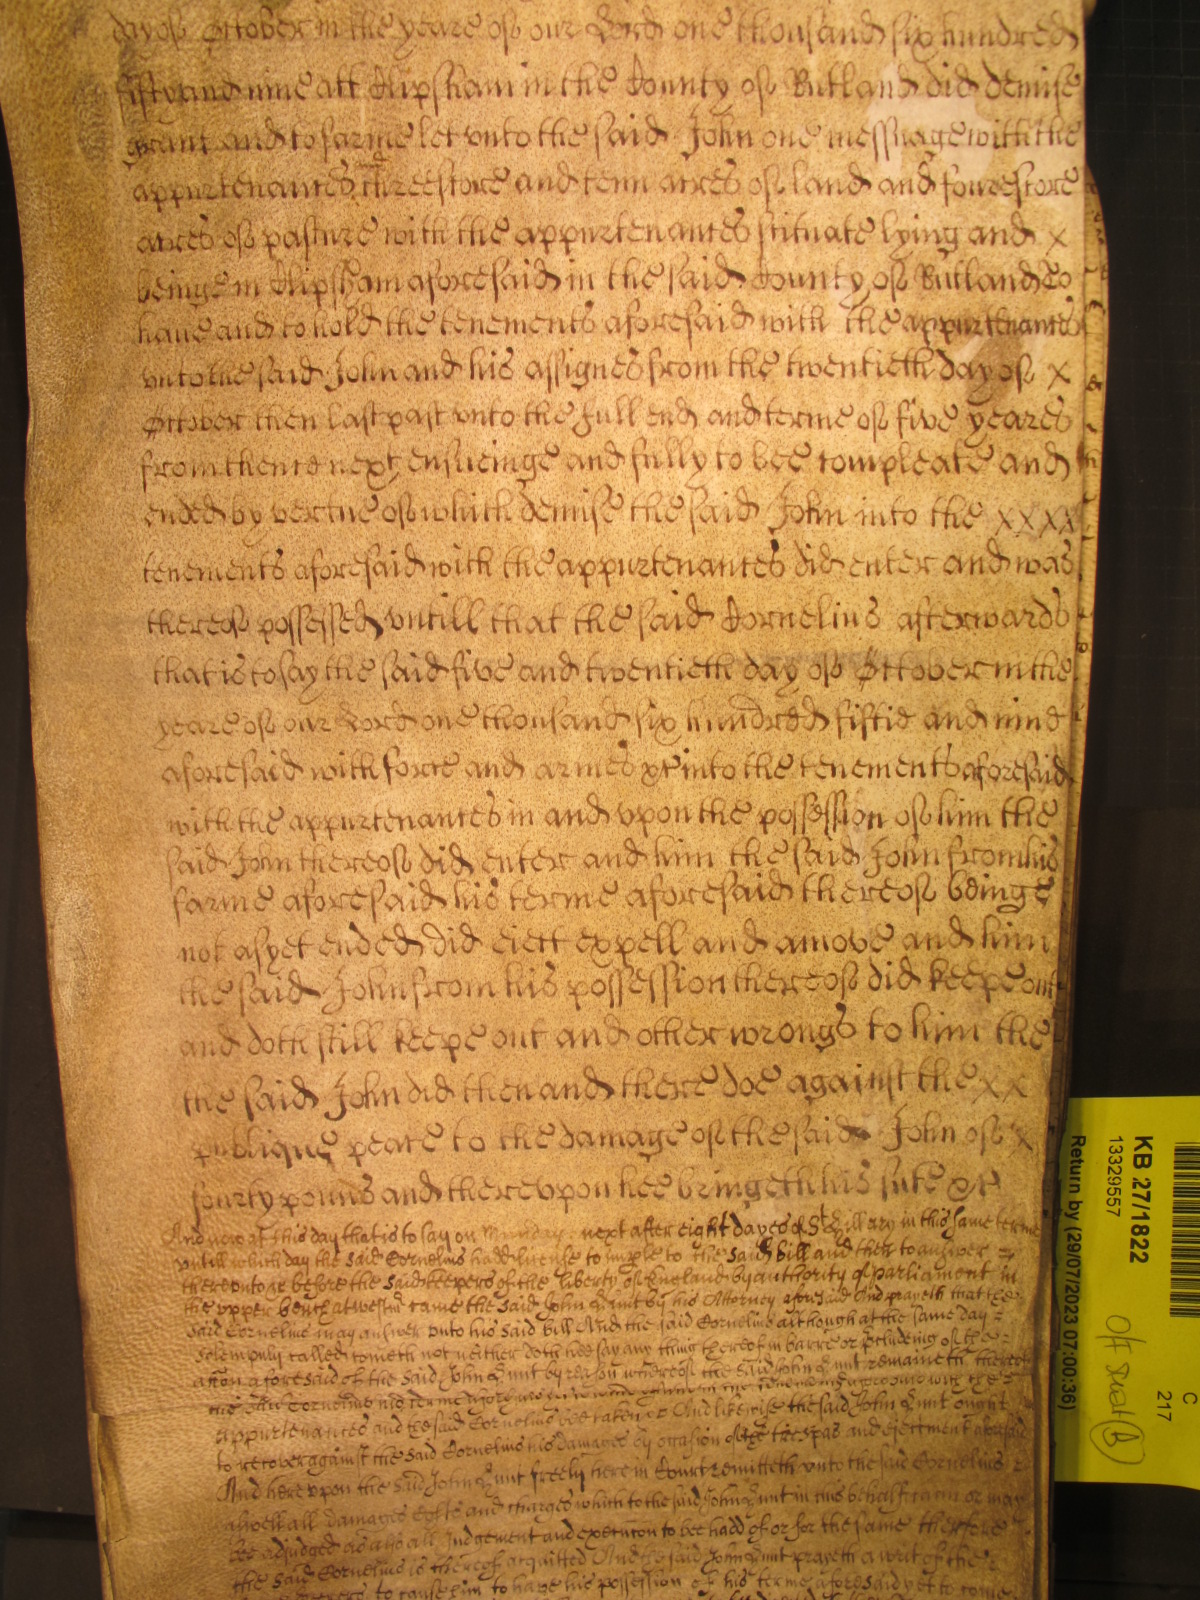 day of October in the yeare of our Lord one thousand six hundred
fifty and nine att Clipsham in the County of Rutland did demise
graunt and to farme let unto the said John one messuage with the
appurtenances threescore and tenn acres of land and fourescore
acres of pasture with the appurtenances scituate lying and x
beinge in Clipsham aforesaid in the said County of Rutland To
have and to hold the tenements aforesaid with the appurtenances
unto the said John and his assignes from the twentieth day of x
October then last past unto the full end and terme of five yeares
from thence next ensueinge and fully to bee compleate and
ended by vertue of which demise the said John into the xxxx
tenements aforesaid with the appurtenances did enter and was
thereof possessed untill that the said Cornelius afterwards
that is to say the said five and twentieth day of October in the
yeare of our Lord one thousand six hundred fiftie and nine
aforesaid with force and armes &c into the tenements aforesaid
with the appurtenances in and upon the possession of him the
said John thereof did enter and him the said John from his
farme aforesaid his terme aforesaid thereof beinge
not as yet ended did eiect expell and amove and him
the said John from his possession thereof did keepe out
and doth still keepe out and other wrongs to him the
the said John did then and there doe against the xx
publique peace to the damage of the said John of x
fourty pounds and thereupon hee bringeth his sute &c
And now at this day that is to say on Munday next after eight dayes of St Hillary in this same terme
untill which day the said Cornelius hadd license to imple to the said bill and then to answer
thereunto &c before the said keepers of the liberty of England by authority of parliament in
the upper bench at Westmr came the said John Hunt by his Attorney aforesaid And prayeth that the
said Cornelius may answer unto his said bill And the said Cornelius although at the same day
solempnly called cometh not neither doth hee say any thing thereof in barre or precludeing of the
accon aforesaid of the said John Hunt by reason whereof the said John Hunt remaineth therein
the said Cornelius his terme in the tenements aforesaid with the
appurtenances and the said Cornelius bee taken &c And likewise the said John Hunt ought
to recover against the said Cornelius his damages by occasion of the trespas and eiectment aforesaid
And hereupon the said John Hunt freely here in Court remitteth unto the said Cornelius
aswell all damages costs and charges which to the said John Hunt in this behalf can or may
bee adjudged as also all Judgement and execucon to bee hadd of or for the same therefore
the said Cornelius is thereof acquitted And the said John Hunt prayeth a writ of the
to cause him to have his possession of his terme aforesaid yet to come
KB 27/1822
13329557
Return by (29/07/2023 07:00:36)
C
217